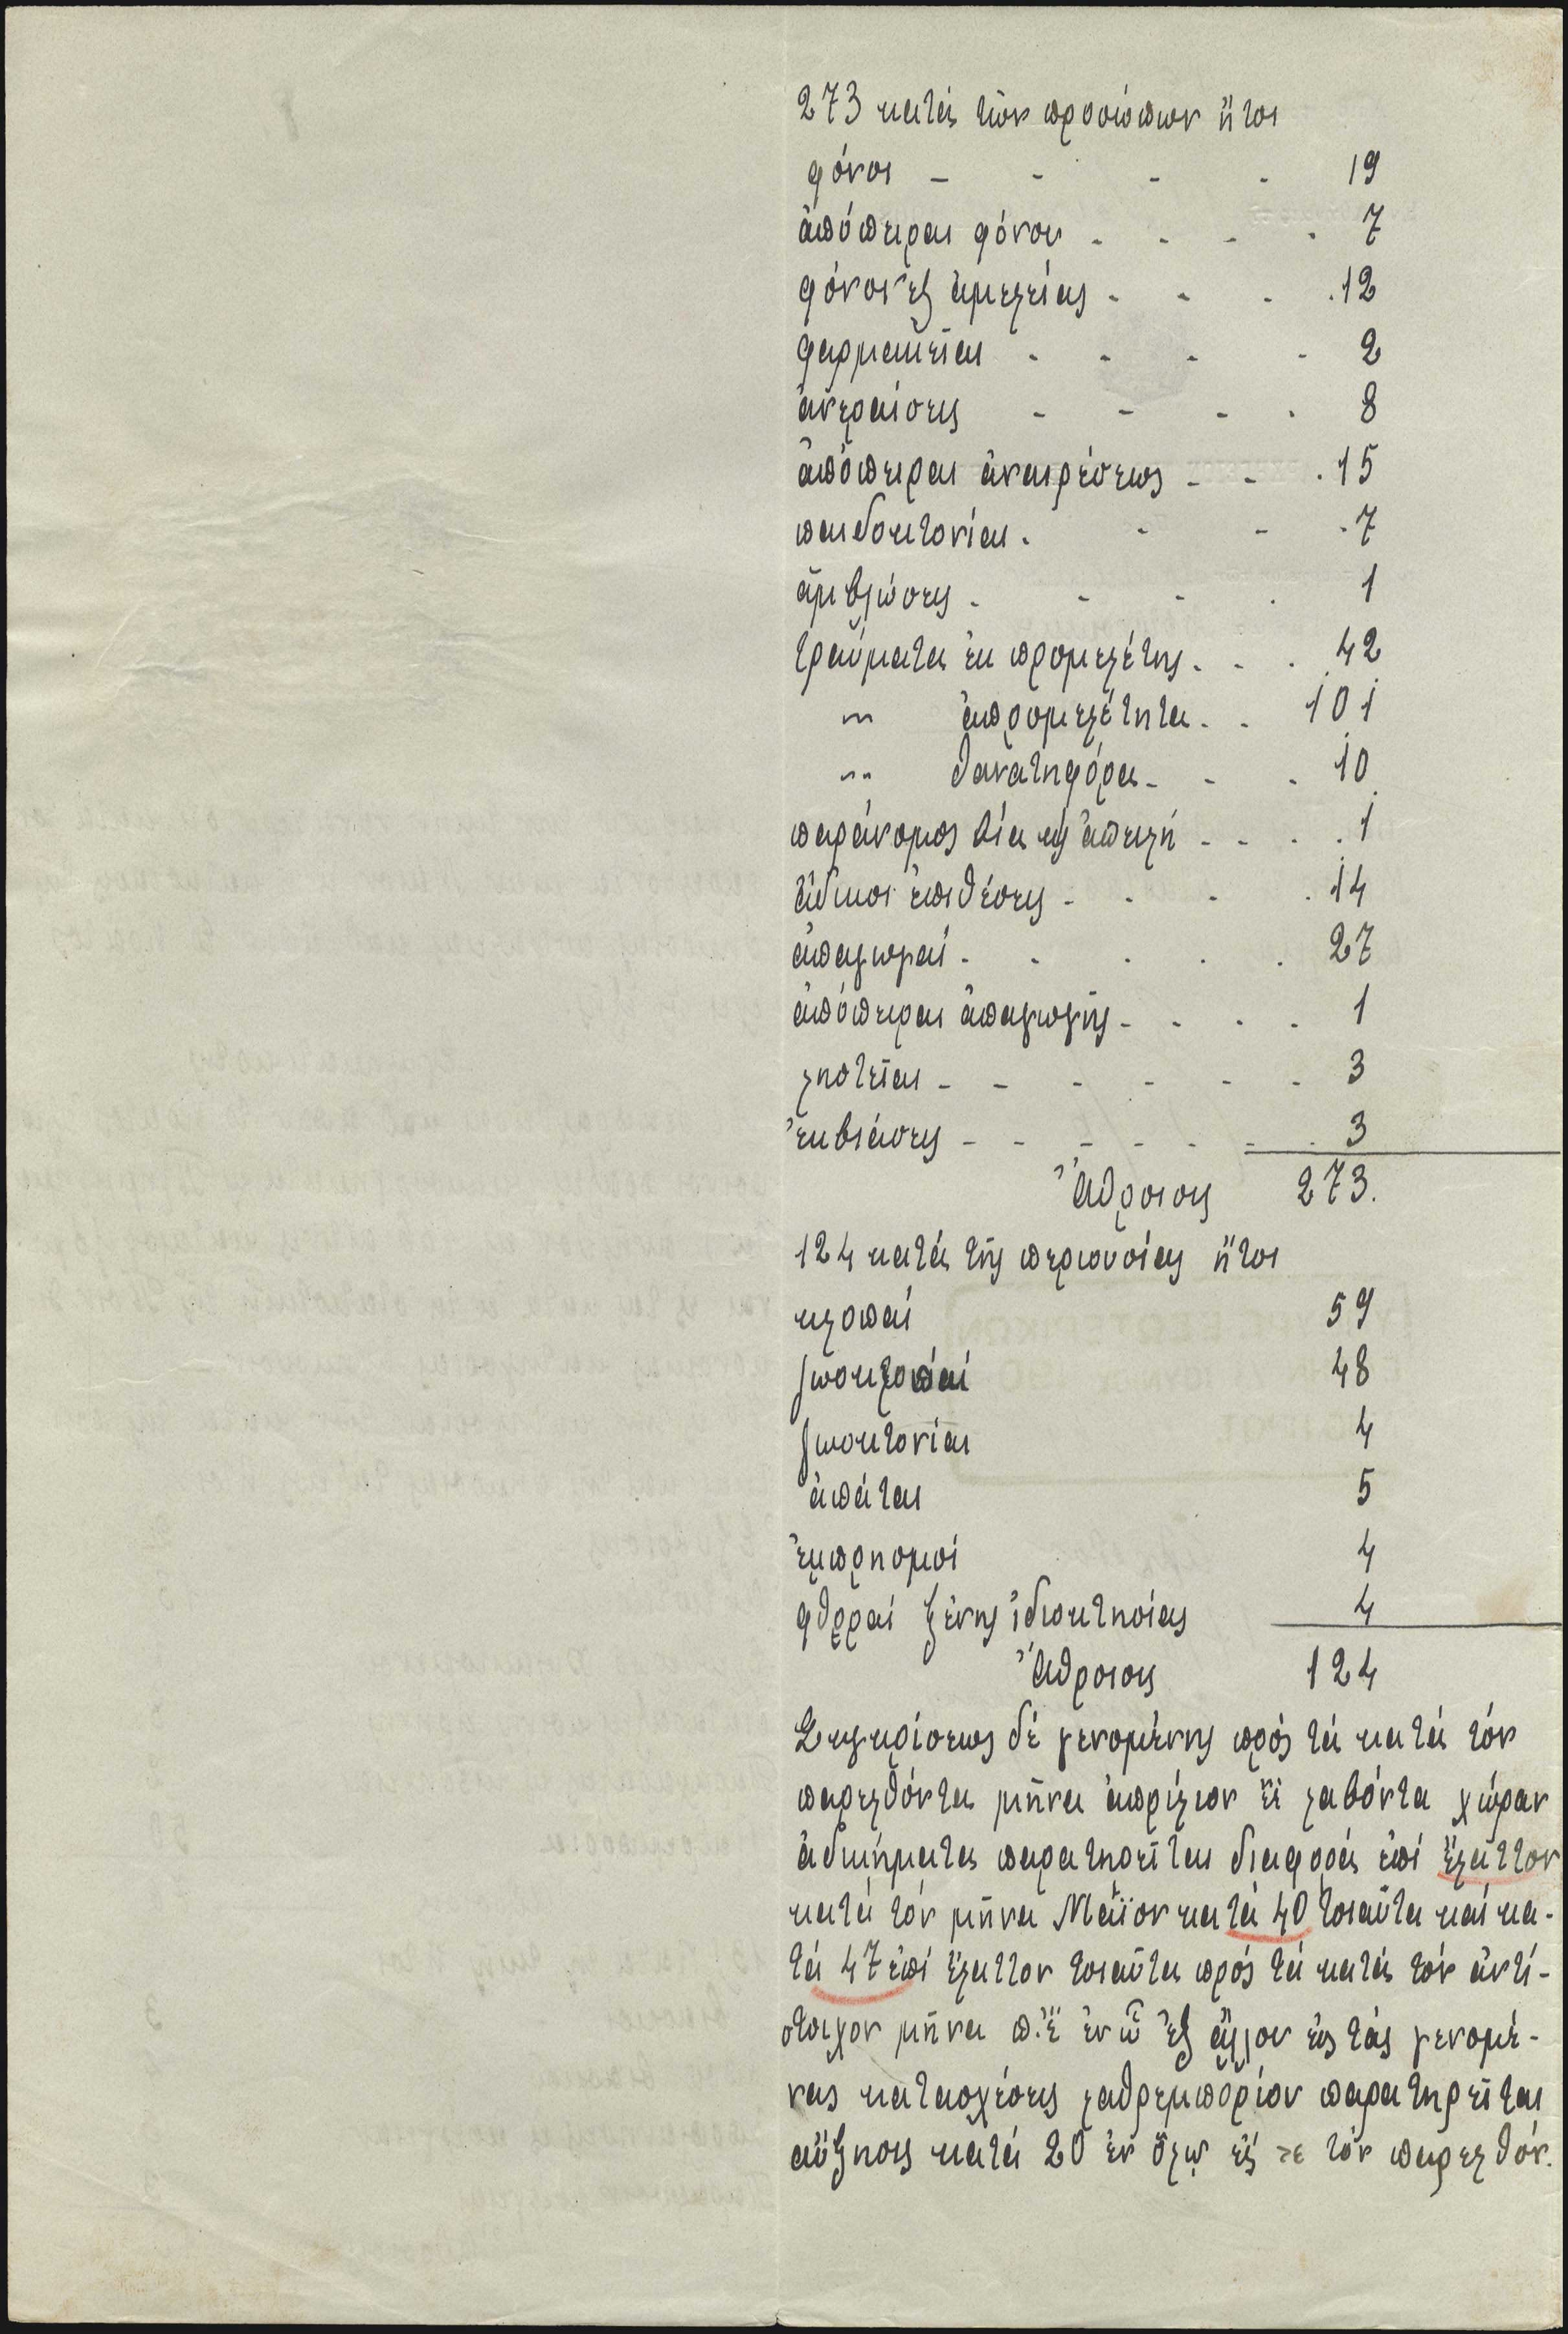 273 κατά τῶν προσώπων ἤτοι
φόνοι - - - - 19
ἀπόπειραι φόνου - - - . 7
φόνοι ἐξ ἀμελείας - - - . 12
φαρμακεῖαι - - - - 2
ἀναιρέσεις - - - . 8
ἀπόπειραι ἀναιρέσεως - - . 15
παιδοκτονίαι . - - . 7
ἀμβλώσεις - - - . 1
τραύματα ἐκ προμελέτης . - . 42
〃 ἀπρομελέτητα - . 101
〃 θανατηφόρα - - . 10
παράνομος βία καί ἀπειλή - - . . 1
ἄδικοι ἐπιθέσεις - - - . 14
ἀπαγωγαί - . . . . 27
ἀπόπειραι ἀπαγωγῆς - . . . 1
ληστεῖαι - - - - - - 3
ἐκβιάσεις - - - - - - . 3
Ἄθροισις 273.
124 κατά τῆς περιουσίας ἤτοι
κλοπαί 59
ζωοκλοπαί 48
ζωοκτονίαι 4
ἀπάται 5
ἐμπρησμοί 4
φθοραί ξένης ἰδιοκτησίας 4
Ἄθροισις 124
Συγκρίσεως δέ γενομένης πρός τά κατά τόν
παρελθόντα μῆνα ἀπρίλιον ἔ.ἔ λαβόντα χώραν
ἀδικήματα παρατηρεῖται διαφορά ἐπί ἔλαττον
κατά τόν μῆνα Μάϊον κατά 40 τοιαῦτα καί κα-
τά 47 ἐπί ἔλαττον τοιαῦτα πρός τά κατά τόν ἀντί-
στοιχον μῆνα π.ἔ ἐν ᾧ ἐξ ἄλλου εἰς τάς γενομέ-
νας κατασχέσεις λαθρεμπορίου παρατηρεῖται
αὔξησις κατά 20 ἐν ὅλῳ εἰς τε τόν παρελθόν.